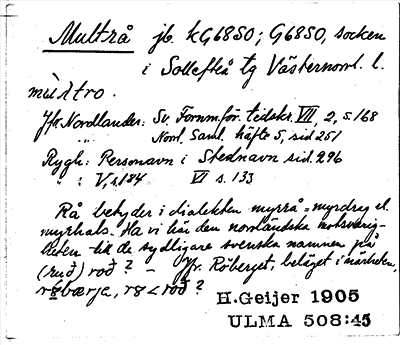 Multrå jb. KG68SO; G68SO, socken
i Sollefteå tg Västernorrl. l.
mùltro.
Jfr Nordlander: Sv. Fornmför. tidskr. VII, 2, s. 168
Norrl. Saml. häfte 5, sid 251
Rygh: Personavn i Stednavn sid. 296
" : V, s. 184 VI s. 133
Rå betyder i dialekten myrrå = myrdrag el.
myrhals. Ha vi här den norrländska motsvarig-
heten till de sydligare svenska namnen på
(ruð) roð? – Jfr. Röberget, beläget i närheten,
bærja, < roð?
H.Geijer 1905
ULMA 508:45